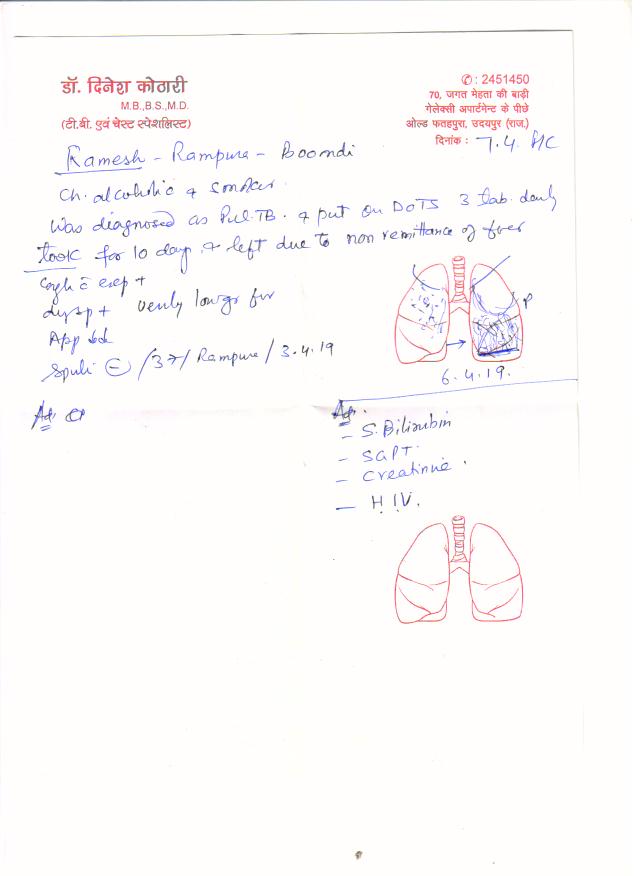 डॉ. दिनेश कोठारी
M.B.,B.S.,M.D.
(टी.बी. एवं चेस्ट स्पेशलिस्ट)
✆: 2451450
70, जगत मेहता की बाड़ी
गेलेक्सी अपार्टमेन्ट के पीछे
ओल्ड फतहपुरा, उदयपुर (राज.)
दिनांक : 7.4.
Ramesh - Rampura - Boondi
Ch. alcoholic & smoker.
Was diagnosed as Pul.TB. & put on DOTS 3 tab. daily
took for 10 days & left due to non remittance of fever
+
dysp +
App
/ Rampura / 3.4.19
P
6.4.19.
Ad.
Ad.
- S.Bilirubin
- SGPT.
- Creatinine.
- H.I.V.